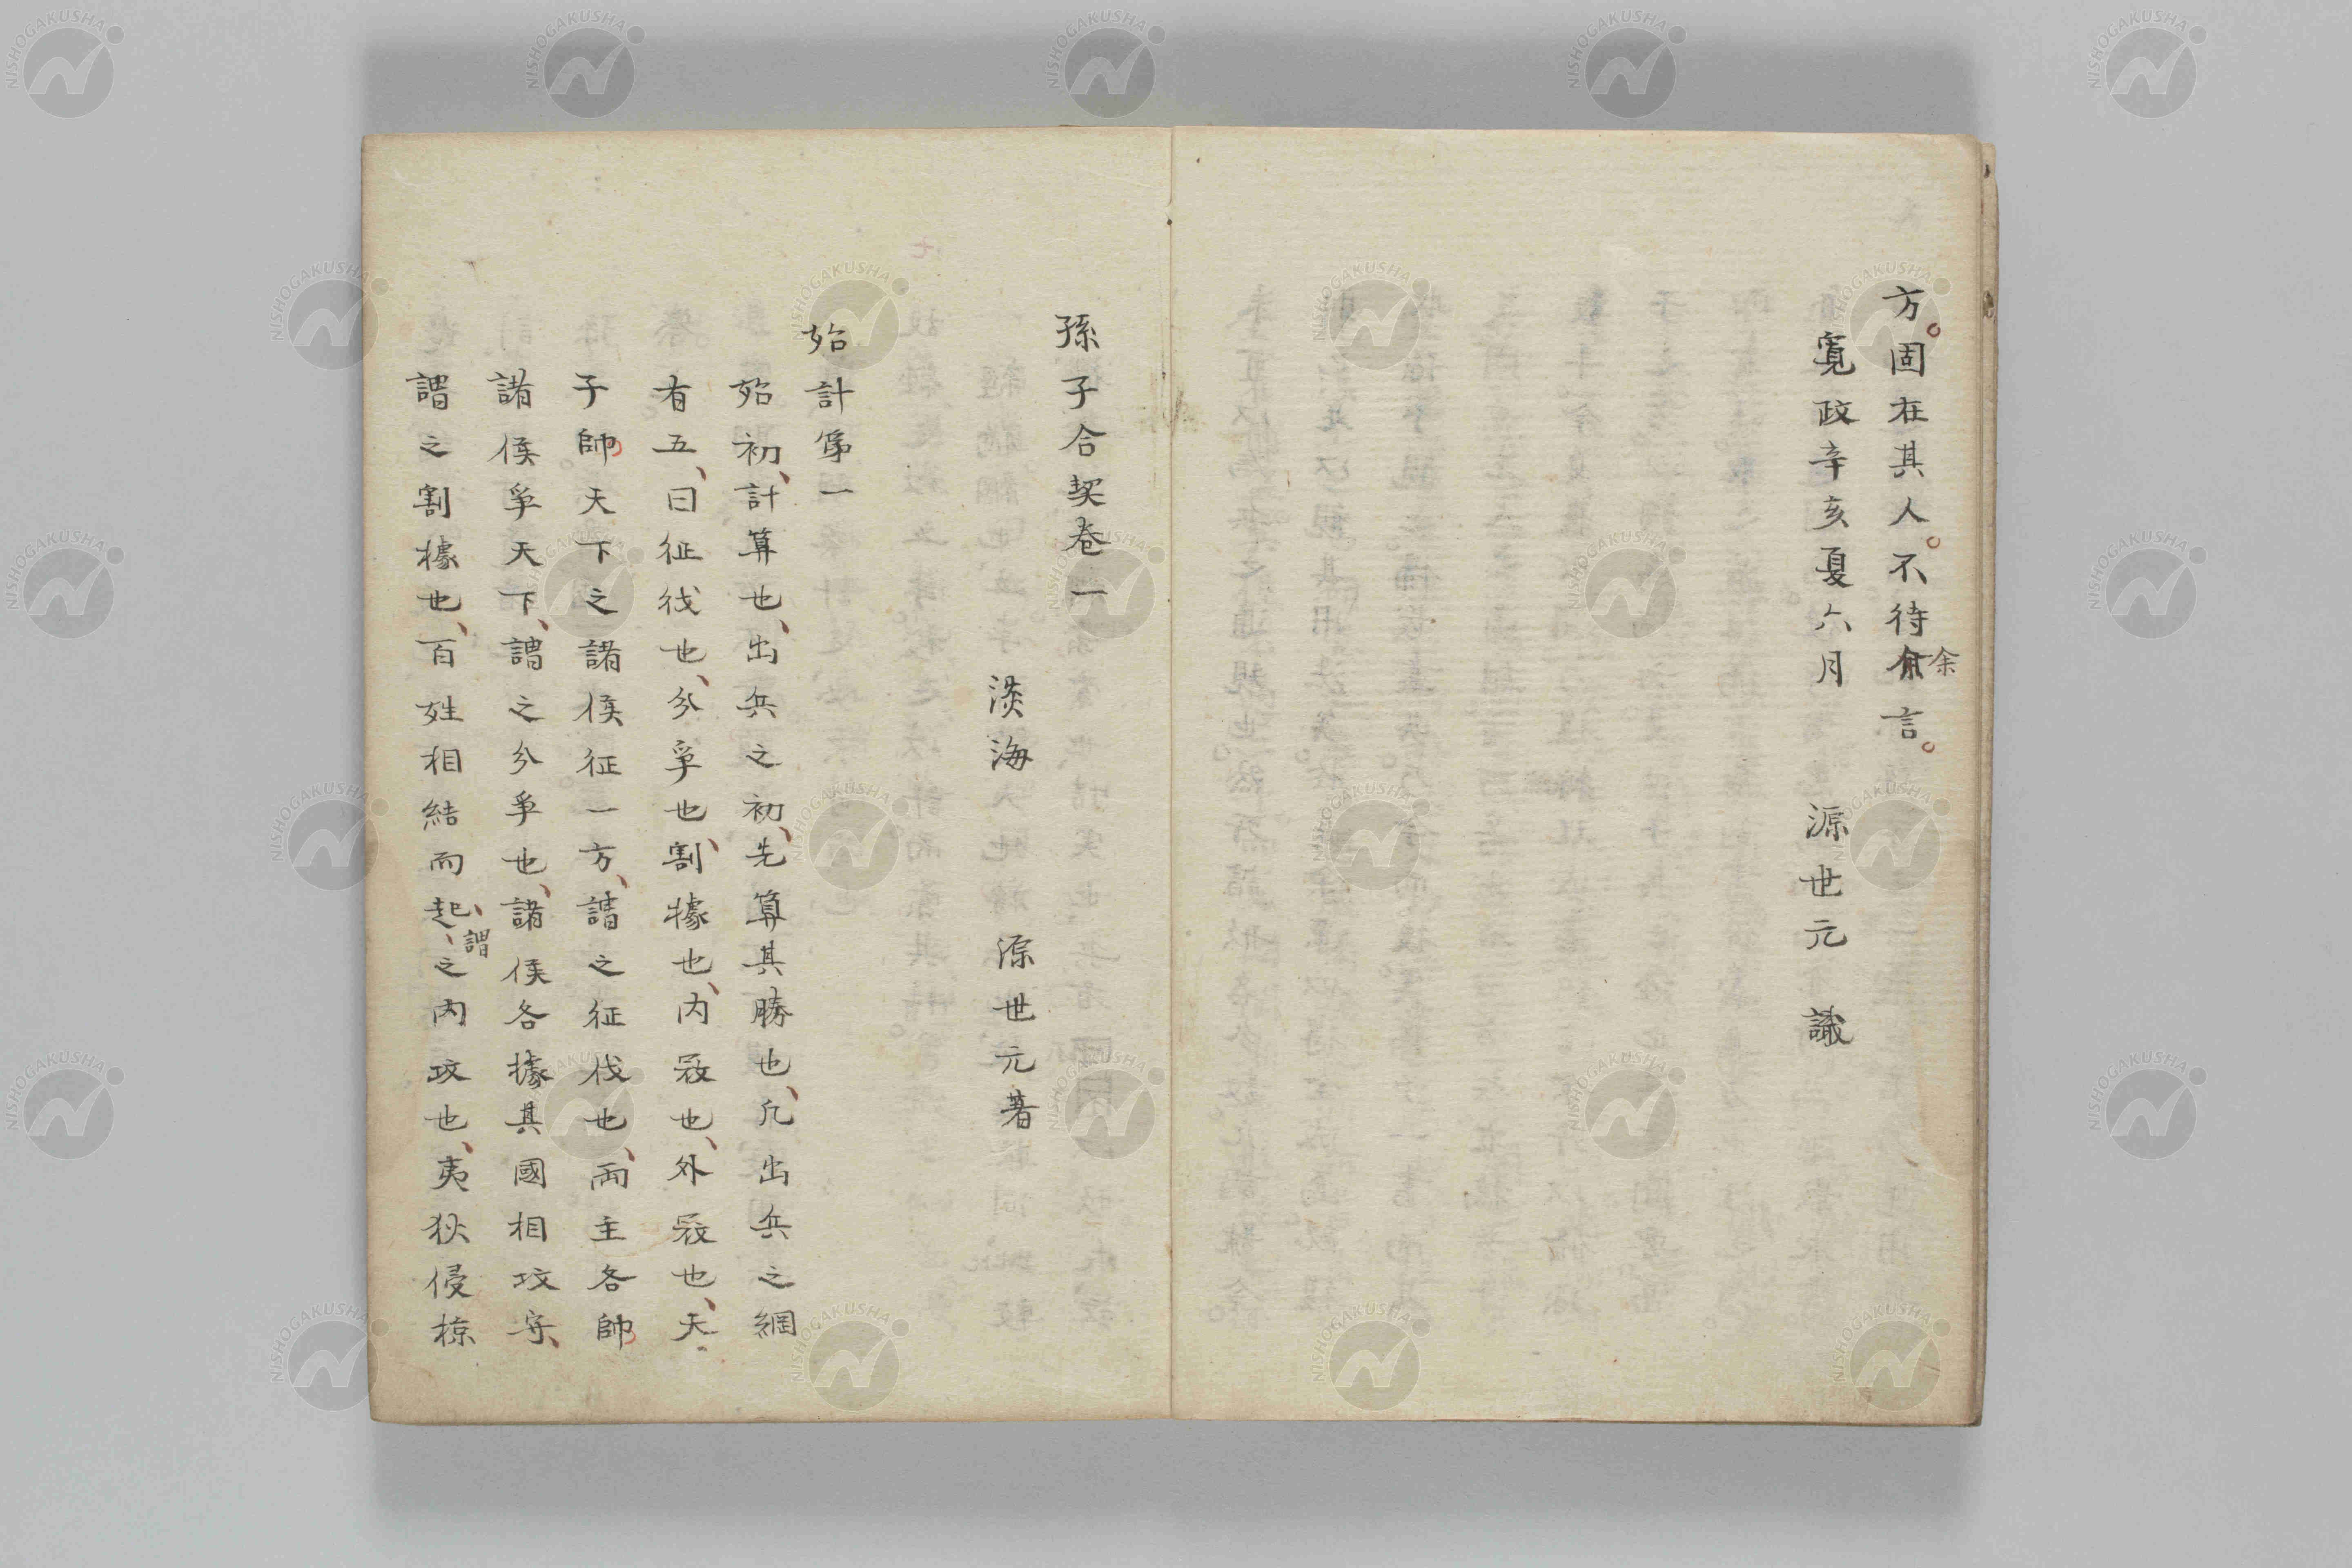 方。固在其人。不待余言。
寛政辛亥夏六月 源世元 識
孫子合契卷一
淡海 源世元著
始計第一
始初、計算也、出兵之初、先算其勝也、凡出兵之綱
有五、曰征伐也、分爭也、割據也、内㓂也、外㓂也、天
子帥天下之諸侯征一方、謂之征伐也、兩主各帥
諸侯爭天下、謂之分爭也、諸侯各據其國相攻守、
謂之割據也、百姓相結而起、謂之内攻也、夷狄侵掠
NISHOGAKUSHA